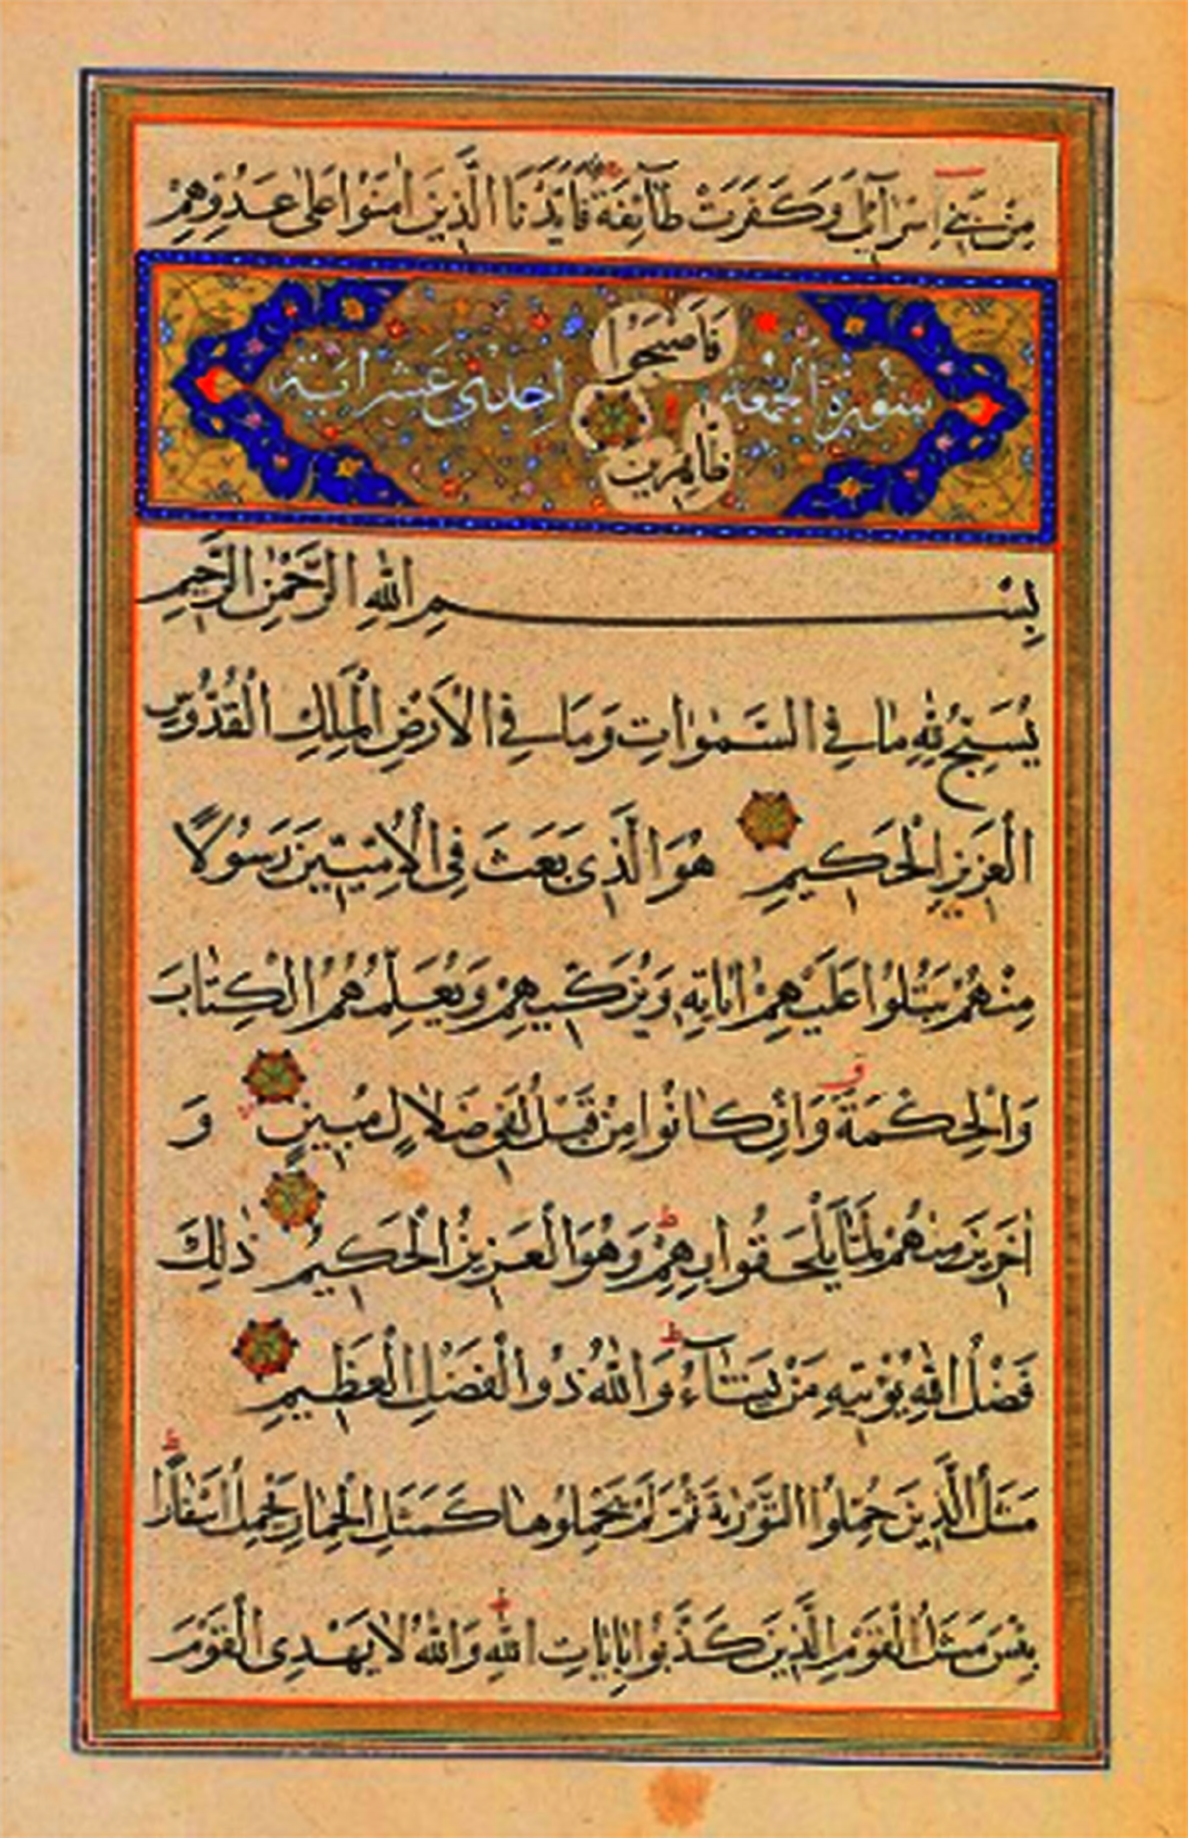 مِنْ بَنِي اِسْرَآئِلَ وَكَفَرَتْ طَآئِفَةٌ فَاَيَّدْنَا الَّذِينَ اٰمَنُوا عَلٰى عَدُوِّهِمْ
فَاَصْبَحُوا
سُورَةُ الْجُمْعَة اِحْدٰى عَشْر اٰيَة
ظَاهِرِينَ
بِسْمِ اللّٰهِ الرَّحْمٰنِ الرَّحِيمِ
يُسَبِّحُ لِلّٰهِ مَا فِي السَّمٰوَاتِ وَمَا فِي الْاَرْضِ الْمَلِكِ الْقُدُّوسِ
الْعَزِيزِ الْحَكِيمِ هُوَ الَّذِي بَعَثَ فِي الْاُمِّيِّينَ رَسُولًا
مِنْهُمْ يَتْلُوا عَلَيْهِمْ اٰيَاتِهِ وَيُزَكِّيهِمْ وَيُعَلِّمُهُمُ الْكِتَابَ
وَالْحِكْمَةَ وَاِنْ كَانُوا مِنْ قَبْلُ لَفِي ضَلَالٍ مُبِينٍ وَ
اٰخَرِينَ مِنْهُمْ لَمَّا يَلْحَقُوا بِهِمْ وَهُوَ الْعَزِيزُ الْحَكِيمُ ذٰلِكَ
فَضْلُ اللّٰهِ يُؤْتِيهِ مَنْ يَشَآءُ وَاللّٰهُ ذُو الْفَضْلِ الْعَظِيمِ
مَثَلُ الَّذِينَ حُمِّلُوا التَّوْرٰيةَ ثُمَّ لَمْ يَحْمِلُوهَا كَمَثَلِ الْحِمَارِ يَحْمِلُ اَسْفَارًا
بِئْسَ مَثَلُ الْقَوْمِ الَّذِينَ كَذَّبُوا بِاٰيَاتِ اللّٰهِ وَاللّٰهُ لَا يَهْدِي الْقَوْمَ